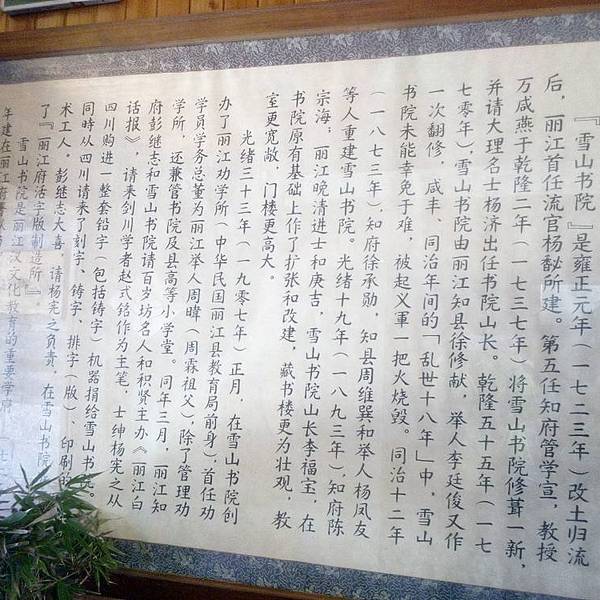 『雪山书院』是雍正元年(一七二三年)改土归流
后，丽江首任流官杨馝所建。第五任知府管学宣，教授
万咸燕于乾隆二年(一七三七年)将雪山书院修葺一新，
并请大理名士杨济出任书院山长。乾隆五十五年(一七
七零年)，雪山书院由丽江知县徐修献，举人李廷俊又作
一次翻修，咸丰、同治年间的「乱世十八年」中，雪山
书院未能幸免于难，被起义軍一把火烧毁。同治十二年
(一八七三年)，知府徐承勋，知县周维巽和举人杨凤友
等人重建雪山书院。光绪十九年(一八九三年)，知府陈
宗海；丽江晚清进士和庚吉，雪山书院山长李福宝，在
书院原有基础上作了扩张和改建，藏书楼更为壮观，教
室更宽敞，门楼更高大。
光绪三十三年(一九零七年)正月，在雪山书院创
办了丽江劝学所(中华民国丽江县教育局前身)，首任劝
学员学务总董为丽江举人周暐(周霖祖父)，除了管理劝
学所，还兼管书院及县高等小学堂。同年三月，丽江知
府彭继志和雪山书院请百岁坊名人和积贤主办《丽江白
话报》，请来剑川学者赵式铭作为主笔，士绅杨宪之从
四川购进一整套铅字(包括铸字)机器捐给雪山书院。
同時从四川请来了刻字、铸字、排字(版)、印刷
术工人。彭继志大喜，请杨宪之负责，在雪山书院
了『丽江府活字版制造所』。
雪山书院是丽江汉文化教育的重要学府
年建在丽江府